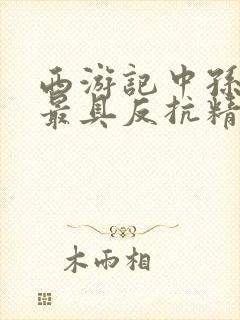 西游記中孫
最具反抗精
木雨相